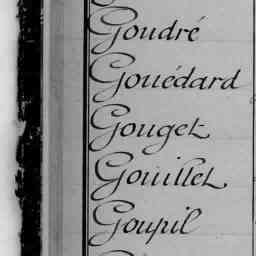 Goudré
Gouédard
Gouget
Gouillet
Goupil